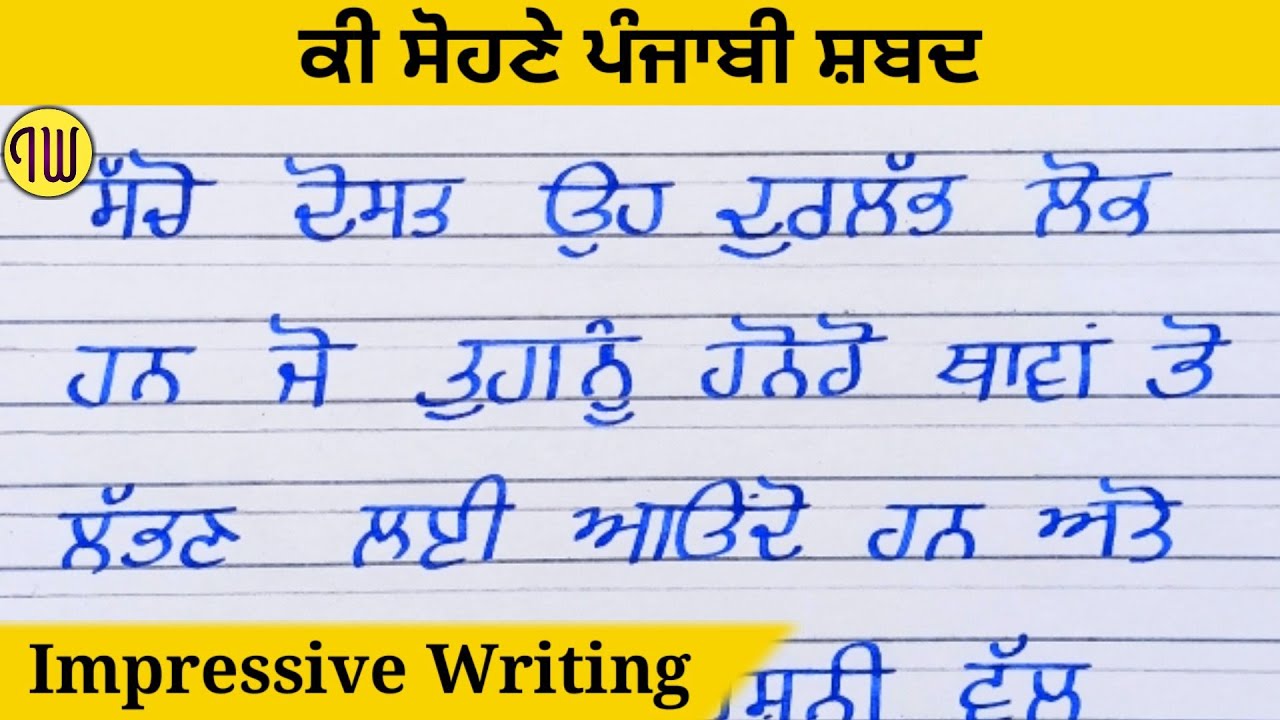 ਕੀ ਸੋਹਣੇ ਪੰਜਾਬੀ ਸ਼ਬਦ
IW
ਸੱਚੇ ਦੋਸਤ ਉਹ ਦੁਰਲੱਭ ਲੋਕ
ਹਨ ਜੋ ਤੁਹਾਨੂੰ ਹਨੇਰੇ ਥਾਵਾਂ ਤੇ
ਲੱਭਣ ਲਈ ਆਉਂਦੇ ਹਨ ਅਤੇ
ਵੱਲ
Impressive Writing